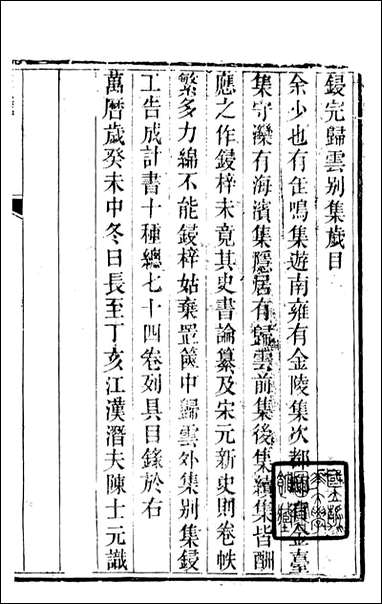 鋟完歸雲別集歲目
余少也有缶鳴集遊南雍有金陵集次都有金臺
集守灤有海濱集隱居有歸雲前集後集續集皆酬
應之作鋟梓未竟其史書論纂及宋元新史則卷帙
繁多力綿不能鋟梓姑棄置篋中歸雲外集別集鋟
工告成計書十種總七十四卷列具目錄於右
萬曆歲癸未中冬日長至丁亥江漢潛夫陳士元識